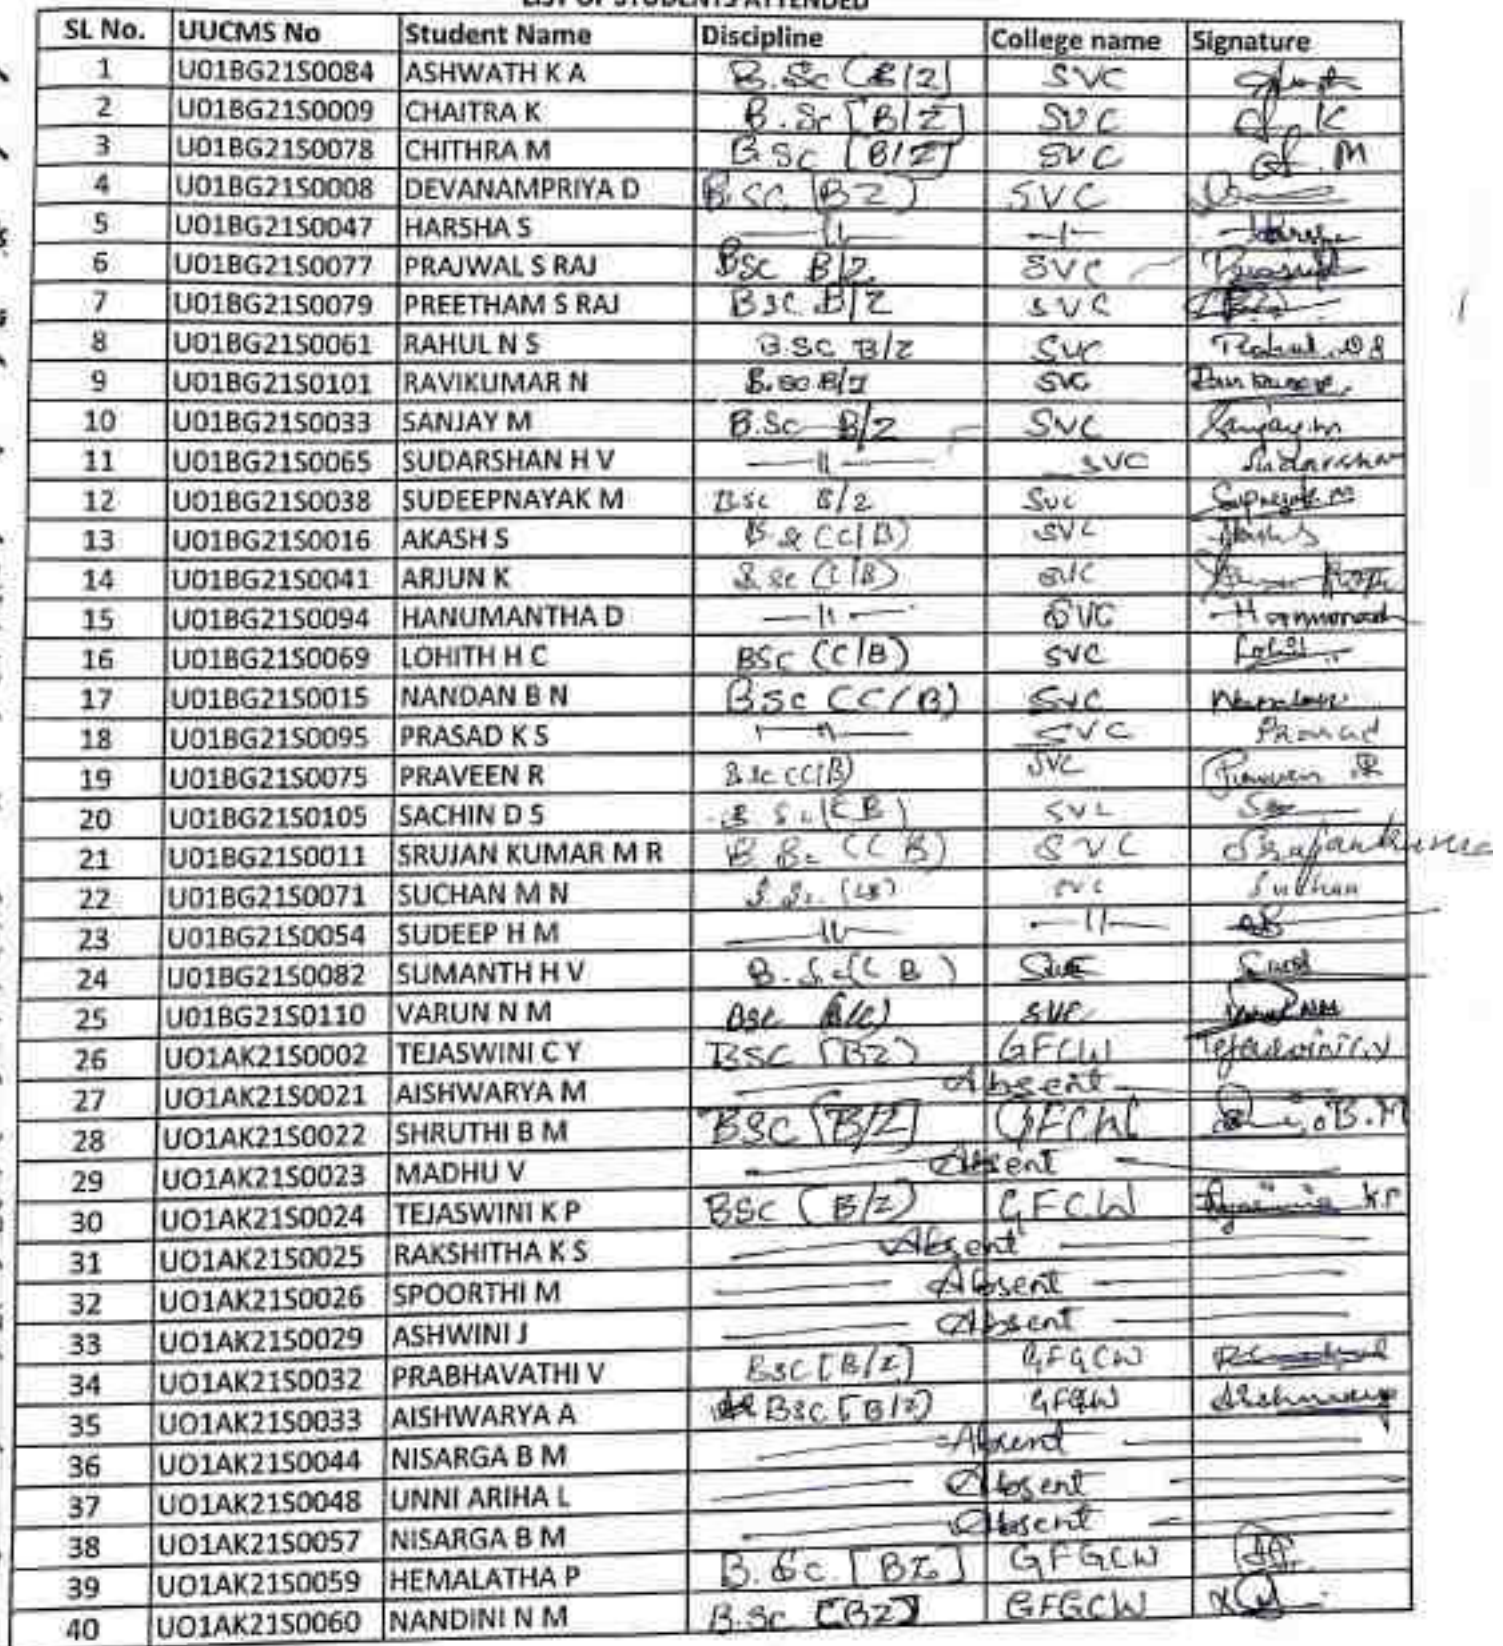 LIST OF STUDENTS ATTENDED
SL No. UUCMS No Student Name Discipline College name Signature
1 U01BG21S0084 ASHWATH K A B.Sc (B/Z) SVC
2 U01BG21S0009 CHAITRA K B.Sc [B/Z] SVC K
3 U01BG21S0078 CHITHRA M B.Sc [B/Z] SVC M
4 U01BG21S0008 DEVANAMPRIYA D B.SC. (BZ) SVC
5 U01BG21S0047 HARSHA S —11— —1— Harsha
6 U01BG21S0077 PRAJWAL S RAJ BSC B/Z SVC
7 U01BG21S0079 PREETHAM S RAJ BSC B/Z SVC
8 U01BG21S0061 RAHUL N S B.SC B/Z SVC Rahul.N S
9 U01BG21S0101 RAVIKUMAR N B.SC B/Z SVC
10 U01BG21S0033 SANJAY M B.Sc B/Z SVC Sanjay.m
11 U01BG21S0065 SUDARSHAN H V —11— SVC Sudarshan
12 U01BG21S0038 SUDEEPNAYAK M Bsc B/Z SVC
13 U01BG21S0016 AKASH S B.Sc (C/B) SVC Akash S
14 U01BG21S0041 ARJUN K B.Sc (C/B) SVC
15 U01BG21S0094 HANUMANTHA D —11— SVC
16 U01BG21S0069 LOHITH H C BSC (C/B) SVC Lohit
17 U01BG21S0015 NANDAN B N BSC (C/B) SVC
18 U01BG21S0095 PRASAD K S —11— SVC Prasad
19 U01BG21S0075 PRAVEEN R B.Sc (C/B) SVC Praveen R
20 U01BG21S0105 SACHIN D S B.Sc (CB) SVC
21 U01BG21S0011 SRUJAN KUMAR M R B.Sc (CB) SVC Srujankumar
22 U01BG21S0071 SUCHAN M N B.Sc. (CB) SVC Suchan
23 U01BG21S0054 SUDEEP H M —11— —11—
24 U01BG21S0082 SUMANTH H V B.Sc (CB) SVC
25 U01BG21S0110 VARUN N M BSC (B/C) SVC
26 UO1AK21S0002 TEJASWINI C Y BSC (BZ) GFCW Tejaswini C.Y
27 UO1AK21S0021 AISHWARYA M Absent
28 UO1AK21S0022 SHRUTHI B M BSC [B/Z] GFCW B.M
29 UO1AK21S0023 MADHU V Absent
30 UO1AK21S0024 TEJASWINI K P BSC (B/Z) GFCW K.P
31 UO1AK21S0025 RAKSHITHA K S Absent
32 UO1AK21S0026 SPOORTHI M Absent
33 UO1AK21S0029 ASHWINI J Absent
34 UO1AK21S0032 PRABHAVATHI V BSC [B/Z] GFGCW
35 UO1AK21S0033 AISHWARYA A BSC [B/Z) GFGCW Aishwarya
36 UO1AK21S0044 NISARGA B M Absent
37 UO1AK21S0048 UNNI ARIHA L Absent
38 UO1AK21S0057 NISARGA B M Absent
39 UO1AK21S0059 HEMALATHA P B.Sc. [BZ] GFGCW
40 UO1AK21S0060 NANDINI N M B.Sc [BZ] GFGCW